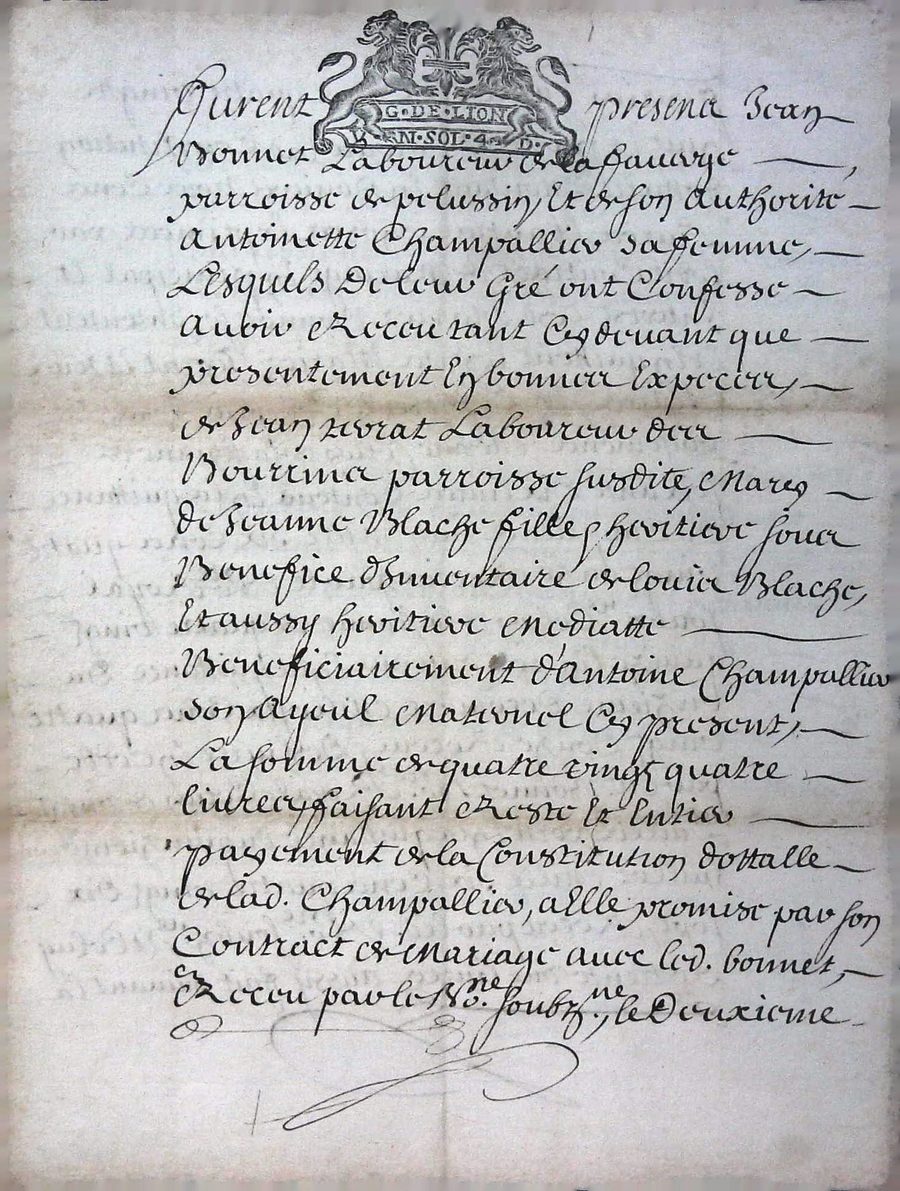 G·DE·LION
M·SOL·4·D·
Furent presens Jean
Bonnet Laboureur de la ffaverge
parroisse de pelussin, Et de son Authorité
Antoinette Champallier sa femme,
Lesquels De leur Gré ont Confessé
Avoir Receu tant Cy devant que
presentement En bonnes Especes,
de Jean Laboureur des
Bourrines parroisse susdite, Mary
de Jeanne Blache fille, heritiere sous
Benefice d'Inventaire de louis Blache,
Et aussy heritiere Mediatte
Beneficiairement d'Antoine Champallier
son Ayeul Maternel Cy present,
La somme de quatre vingt quatre
livres, ffaisant Reste Et Entier
payement de la Constitution dottalle
de lad. Champallier, a Elle promise par son
Contract de Mariage avec led. bonnet,
Receu par le No.re soubz.né, le Deuxieme